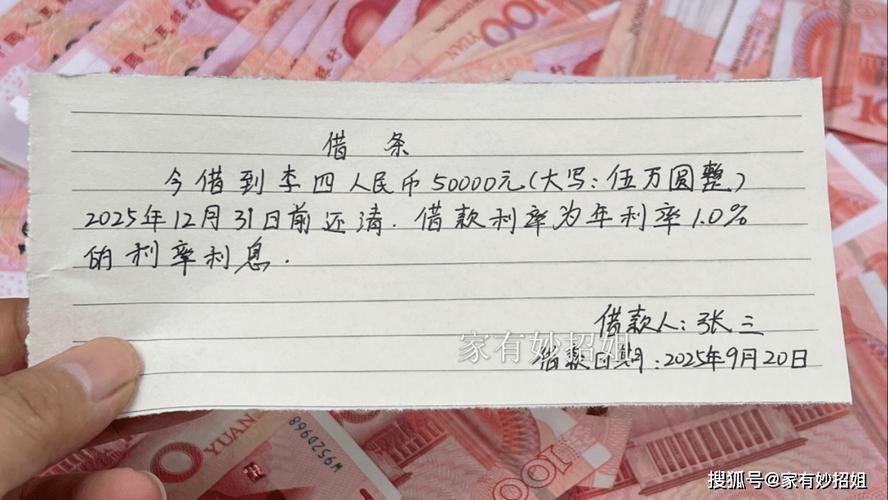 借条
今借到李四人民币50000元(大写:伍万圆整)
2025年12月31日前还清.借款利率为年利率1.0%
的利率利息.
借款人:张三
借款日期:2025年9月20日
家有妙招姐
100
YUAN
100
W9520968
搜狐号@家有妙招姐